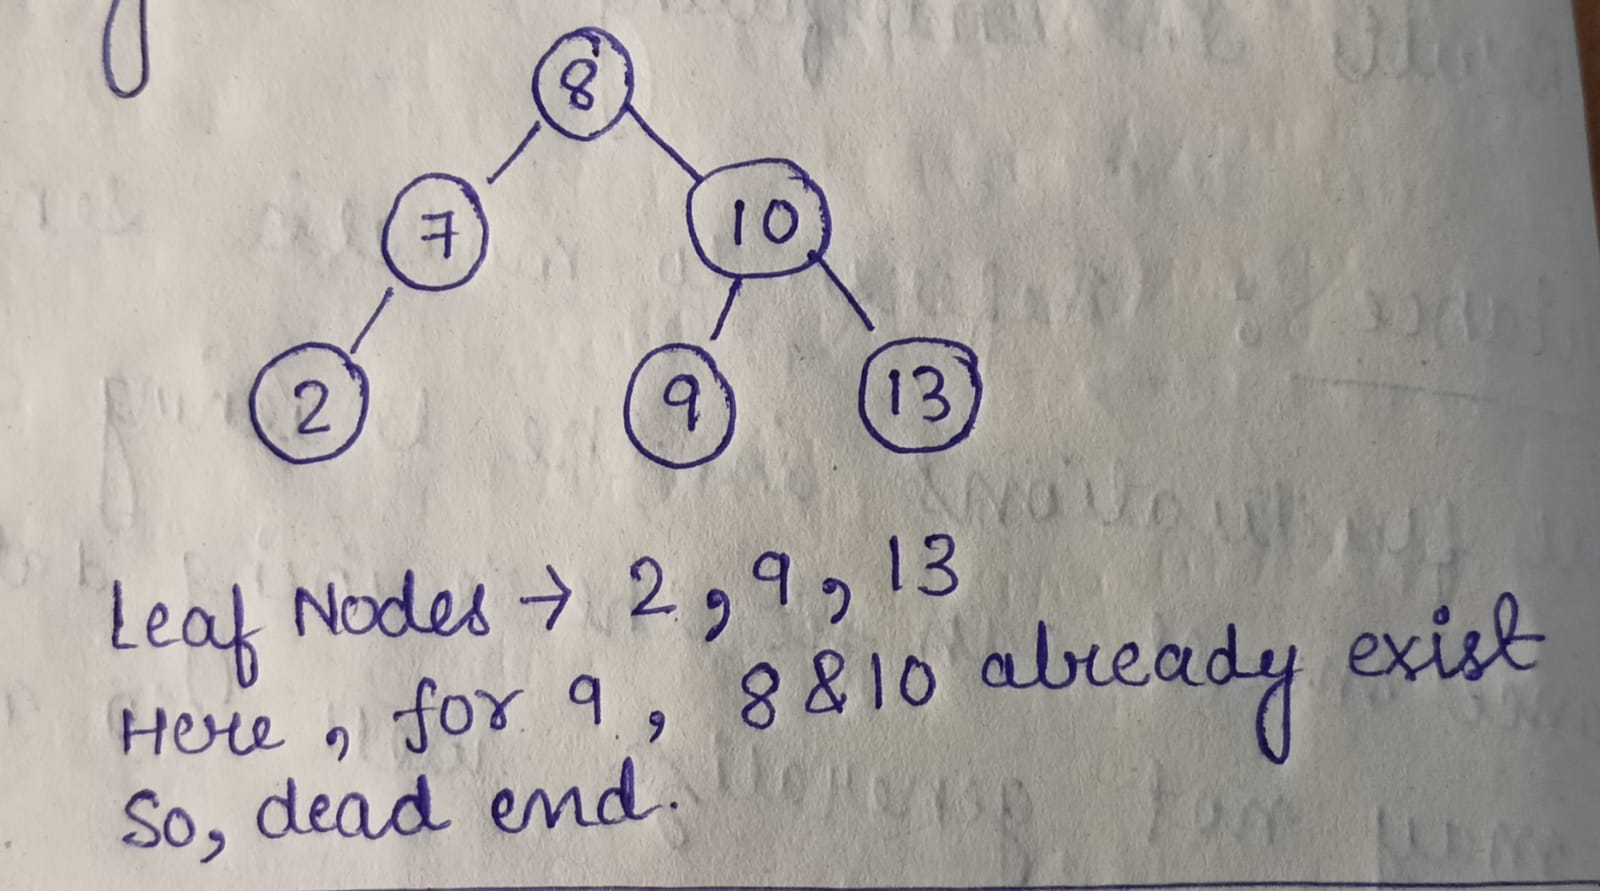 8
7 10
2 9 13
Leaf Nodes → 2, 9, 13
Here, for 9, 8 & 10 already exist
So, dead end.